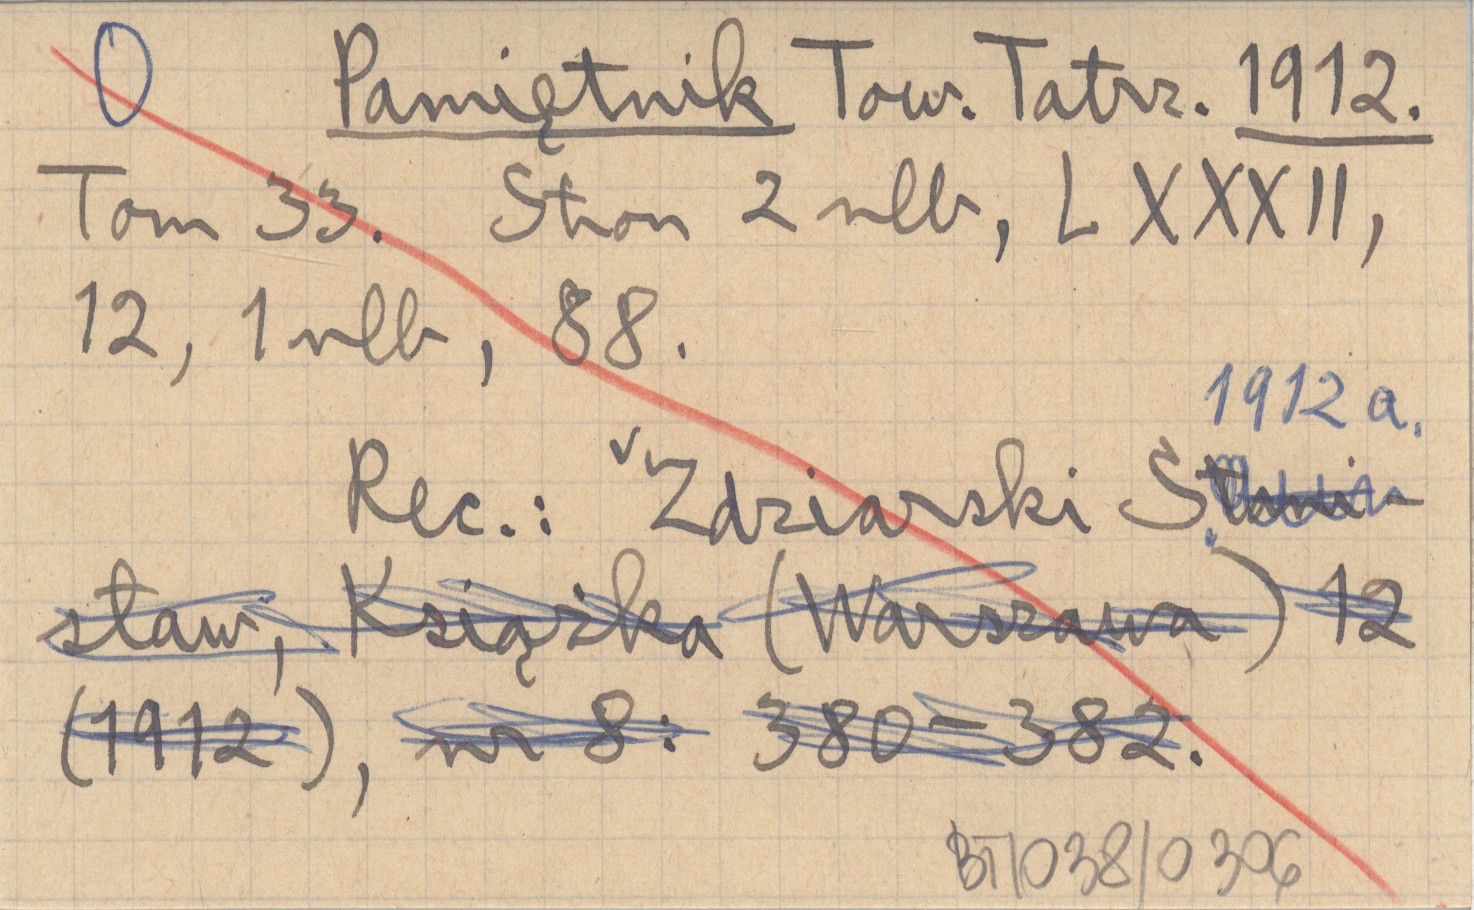 O Pamiętnik Tow. Tatrz. 1912.
Tom 33. Stron 2 nlb, LXXXII,
12, 1 nlb, 88.
1912 a.
Rec.: Zdziarski Stani-
sław, Książka (Warszawa) 12
(1912), nr 8: 380-382.
BT/038/0306